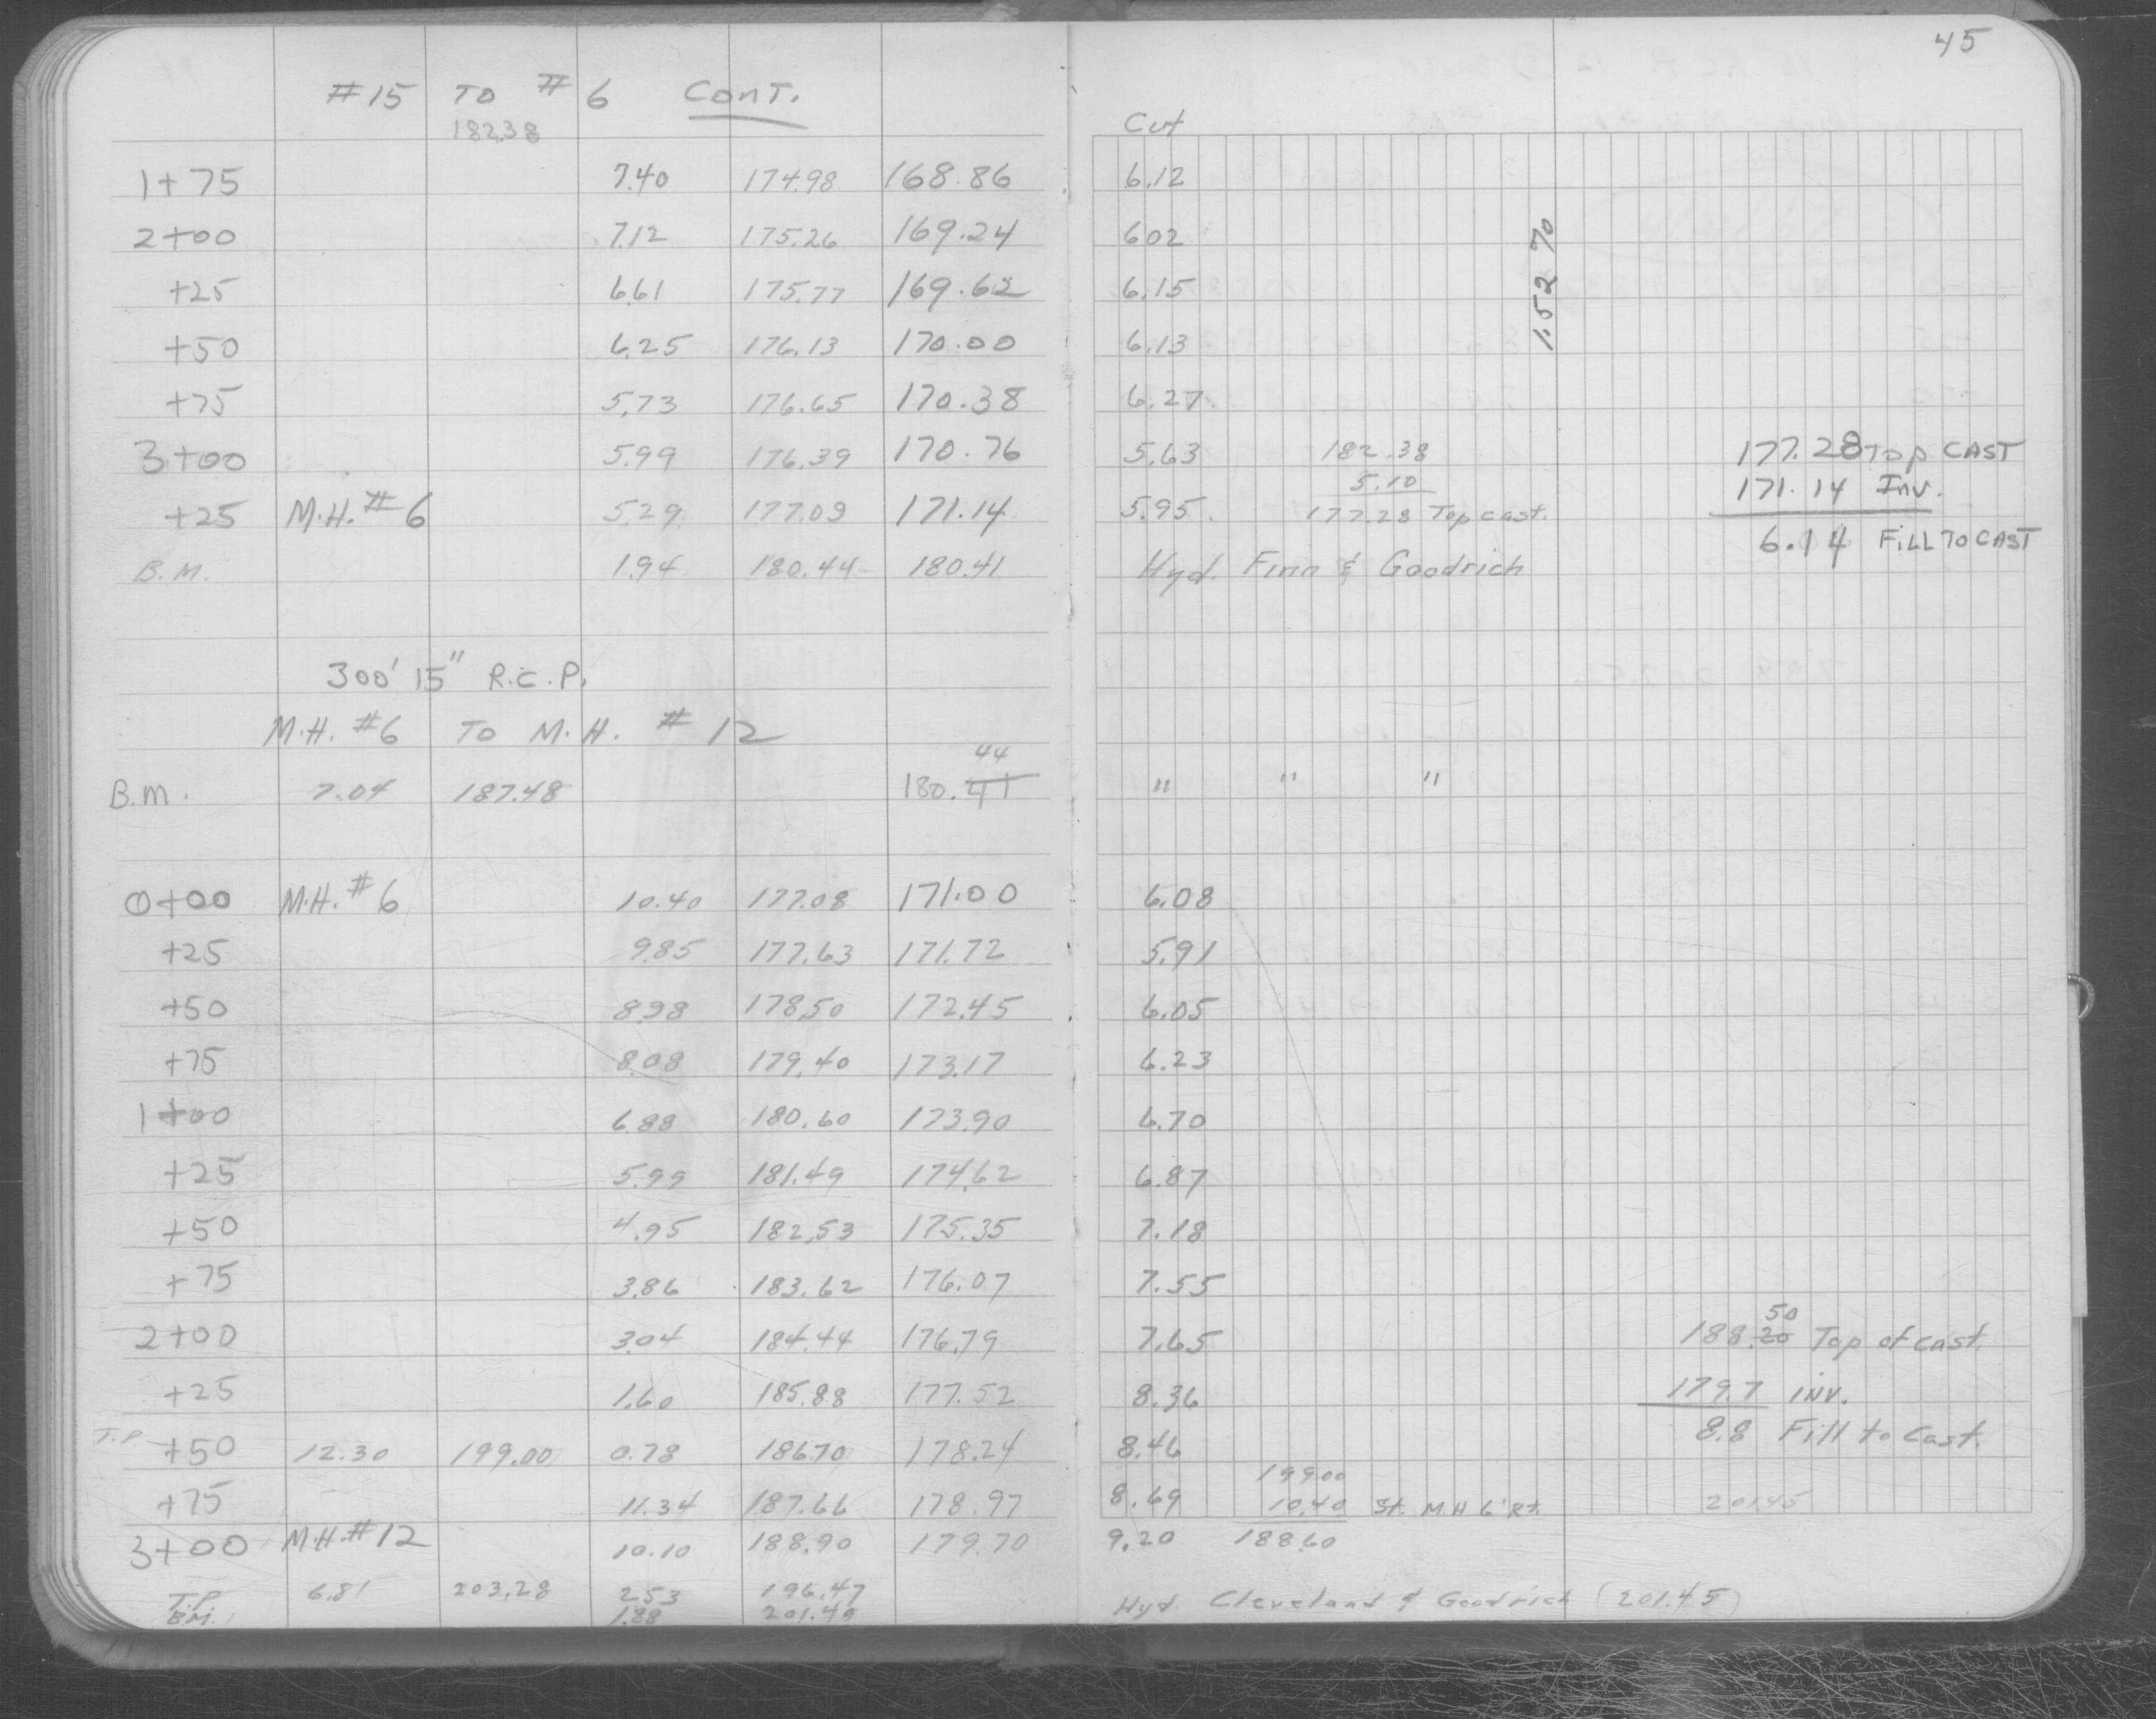 45
#15 TO #6 CONT.
182.38
Cut
1+75 7.40 174.98 168.86 6.12
2+00 7.12 175.26 169.24 602
+25 6.61 175.77 169.62 6.15
+50 6.25 176.13 170.00 6.13
1.52 %
+75 5.73 176.65 170.38 6.27
3+00 5.99 176.39 170.76 5.63 182.38 177.28 Top CAST
5.10 171.14 Inv.
+25 M.H. #6 5.29 177.09 171.14 5.95 177.28 Top cast.
6.14 FILL TO CAST
B.M. 1.94 180.44 180.41 Hyd. Finn & Goodrich
300' 15" R.C.P.
M.H. #6 TO M.H. #12
44
B.M. 7.04 187.48 180.41 " " "
0+00 M.H. #6 10.40 177.08 171.00 6.08
+25 9.85 177.63 171.72 5.91
+50 8.98 178.50 172.45 6.05
+75 8.08 179.40 173.17 6.23
1+00 6.88 180.60 173.90 6.70
+25 5.99 181.49 174.62 6.87
+50 4.95 182.53 175.35 7.18
+75 3.86 183.62 176.07 7.55
50
2+00 3.04 184.44 176.79 7.65 188.20 Top of cast.
+25 1.60 185.88 177.52 8.36 179.7 INV.
8.8 Fill to Cast.
T.P. +50 12.30 199.00 0.78 186.70 178.24 8.46
199.00
+75 11.34 187.66 178.97 8.69 10.40 St. M.H 6' Rt. 201.45
3+00 M.H. #12 10.10 188.90 179.70 9.20 188.60
T.P. 6.81 203.28 2.53 196.47
B.M. 1.88 201.40 Hyd. Cleveland & Goodrich (201.45)